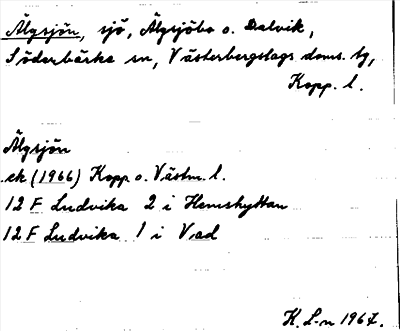 Älgsjön, sjö, Älgsjöbo o. Dalvik,
Söderbärke sn, Västerbergslags doms. tg,
Kopp. l.
Älgsjön
ek (1966) Kopp o. Västm. l.
12 F Ludvika 2 i Hemshyttan
12 F Ludvika 1 i Vad
K. L-n 1967.